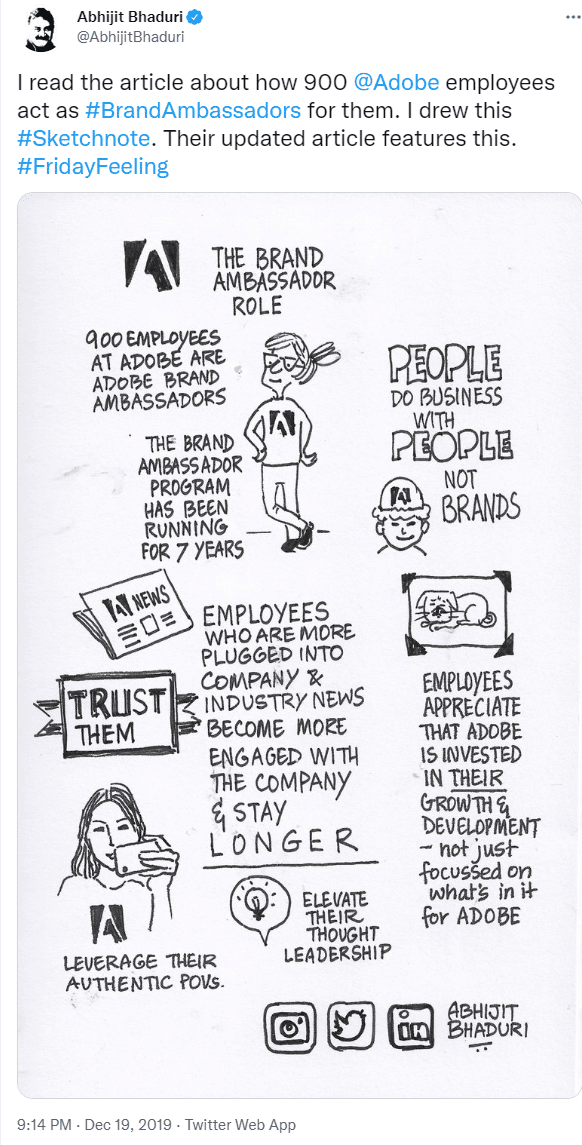 Abhijit Bhaduri
@AbhijitBhaduri
I read the article about how 900 @Adobe employees
act as #BrandAmbassadors for them. I drew this
#Sketchnote. Their updated article features this.
#FridayFeeling
THE BRAND
AMBASSADOR
ROLE
900 EMPLOYEES
AT ADOBE ARE
ADOBE BRAND
AMBASSADORS
THE BRAND
AMBASSADOR
PROGRAM
HAS BEEN
RUNNING
FOR 7 YEARS
PEOPLE
DO BUSINESS
WITH
PEOPLE
NOT
BRANDS
NEWS
TRUST
THEM
EMPLOYEES
WHO ARE MORE
PLUGGED INTO
COMPANY &
INDUSTRY NEWS
BECOME MORE
ENGAGED WITH
THE COMPANY
& STAY
LONGER
EMPLOYEES
APPRECIATE
THAT ADOBE
IS INVESTED
IN THEIR
GROWTH &
DEVELOPMENT
- not just
focussed on
what's in it
for ADOBE
LEVERAGE THEIR
AUTHENTIC POVs.
ELEVATE
THEIR
THOUGHT
LEADERSHIP
in
ABHIJIT
BHADURI
9:14 PM · Dec 19, 2019 · Twitter Web App